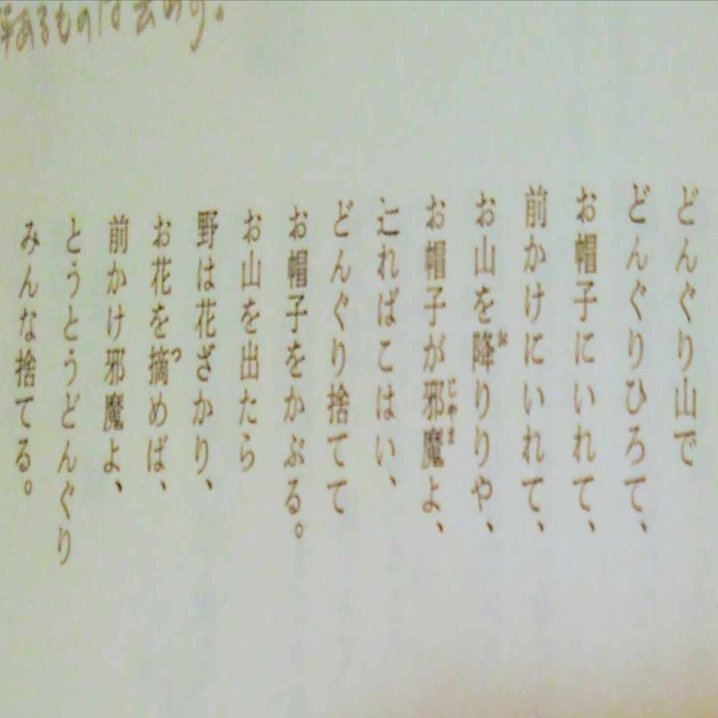 どんぐり山で
どんぐりひろて、
お帽子にいれて、
前かけにいれて、
お山を降りりや、
お帽子が邪魔よ、
辷ればこはい、
どんぐり捨てて
お帽子をかぶる。
お山を出たら
野は花ざかり、
お花を摘めば、
前かけ邪魔よ、
とうとうどんぐり
みんな捨てる。